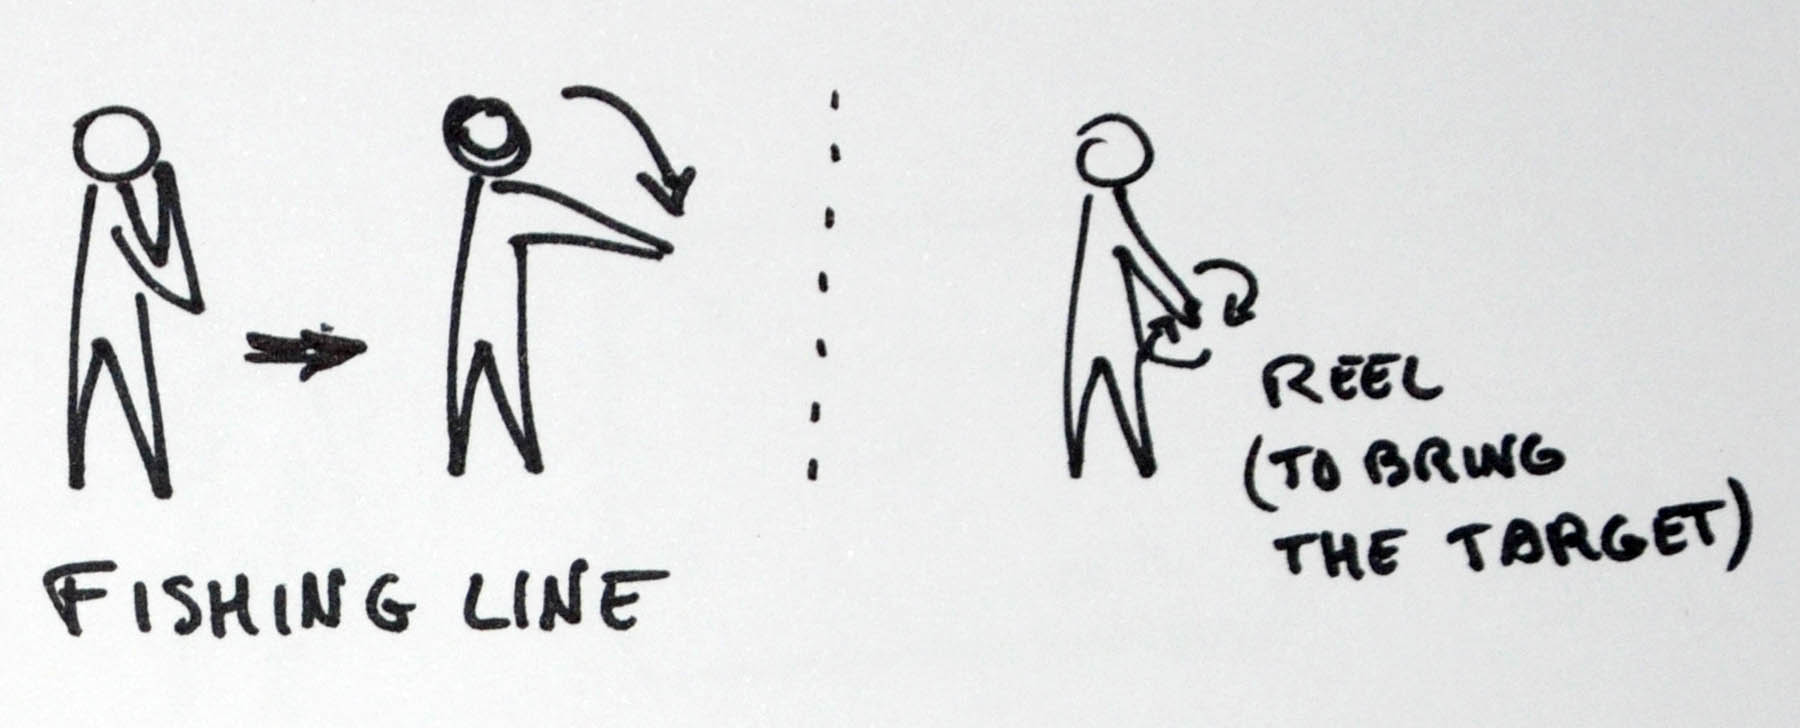 FISHING LINE
REEL
(TO BRING
THE TARGET)